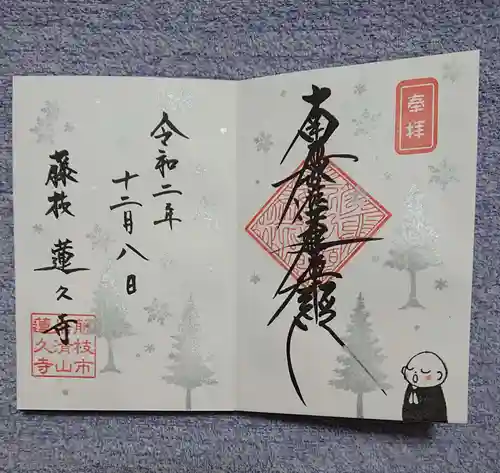 奉拝
南無妙法蓮華経
令和二年
十二月八日
藤枝 蓮久寺
藤枝市
清山
蓮久寺